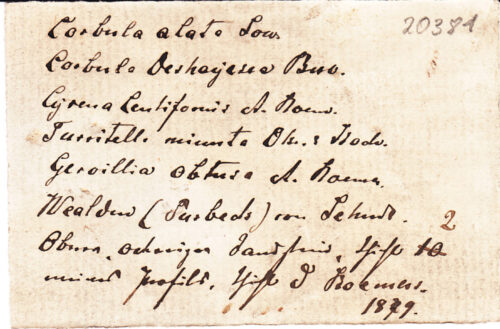 20381
Corbula alata Sow.
Corbula Deshayesea Buv.
Cyrena Lentiformis A. Roem.
Turritella minuta Dk. & Kodr.
Gervillia obtusa A. Roemer
Wealden (Purbeds) von Sehnd. 2
Obere, ockeriger Sandstein,
meines Profils, J Roemers.
1879.